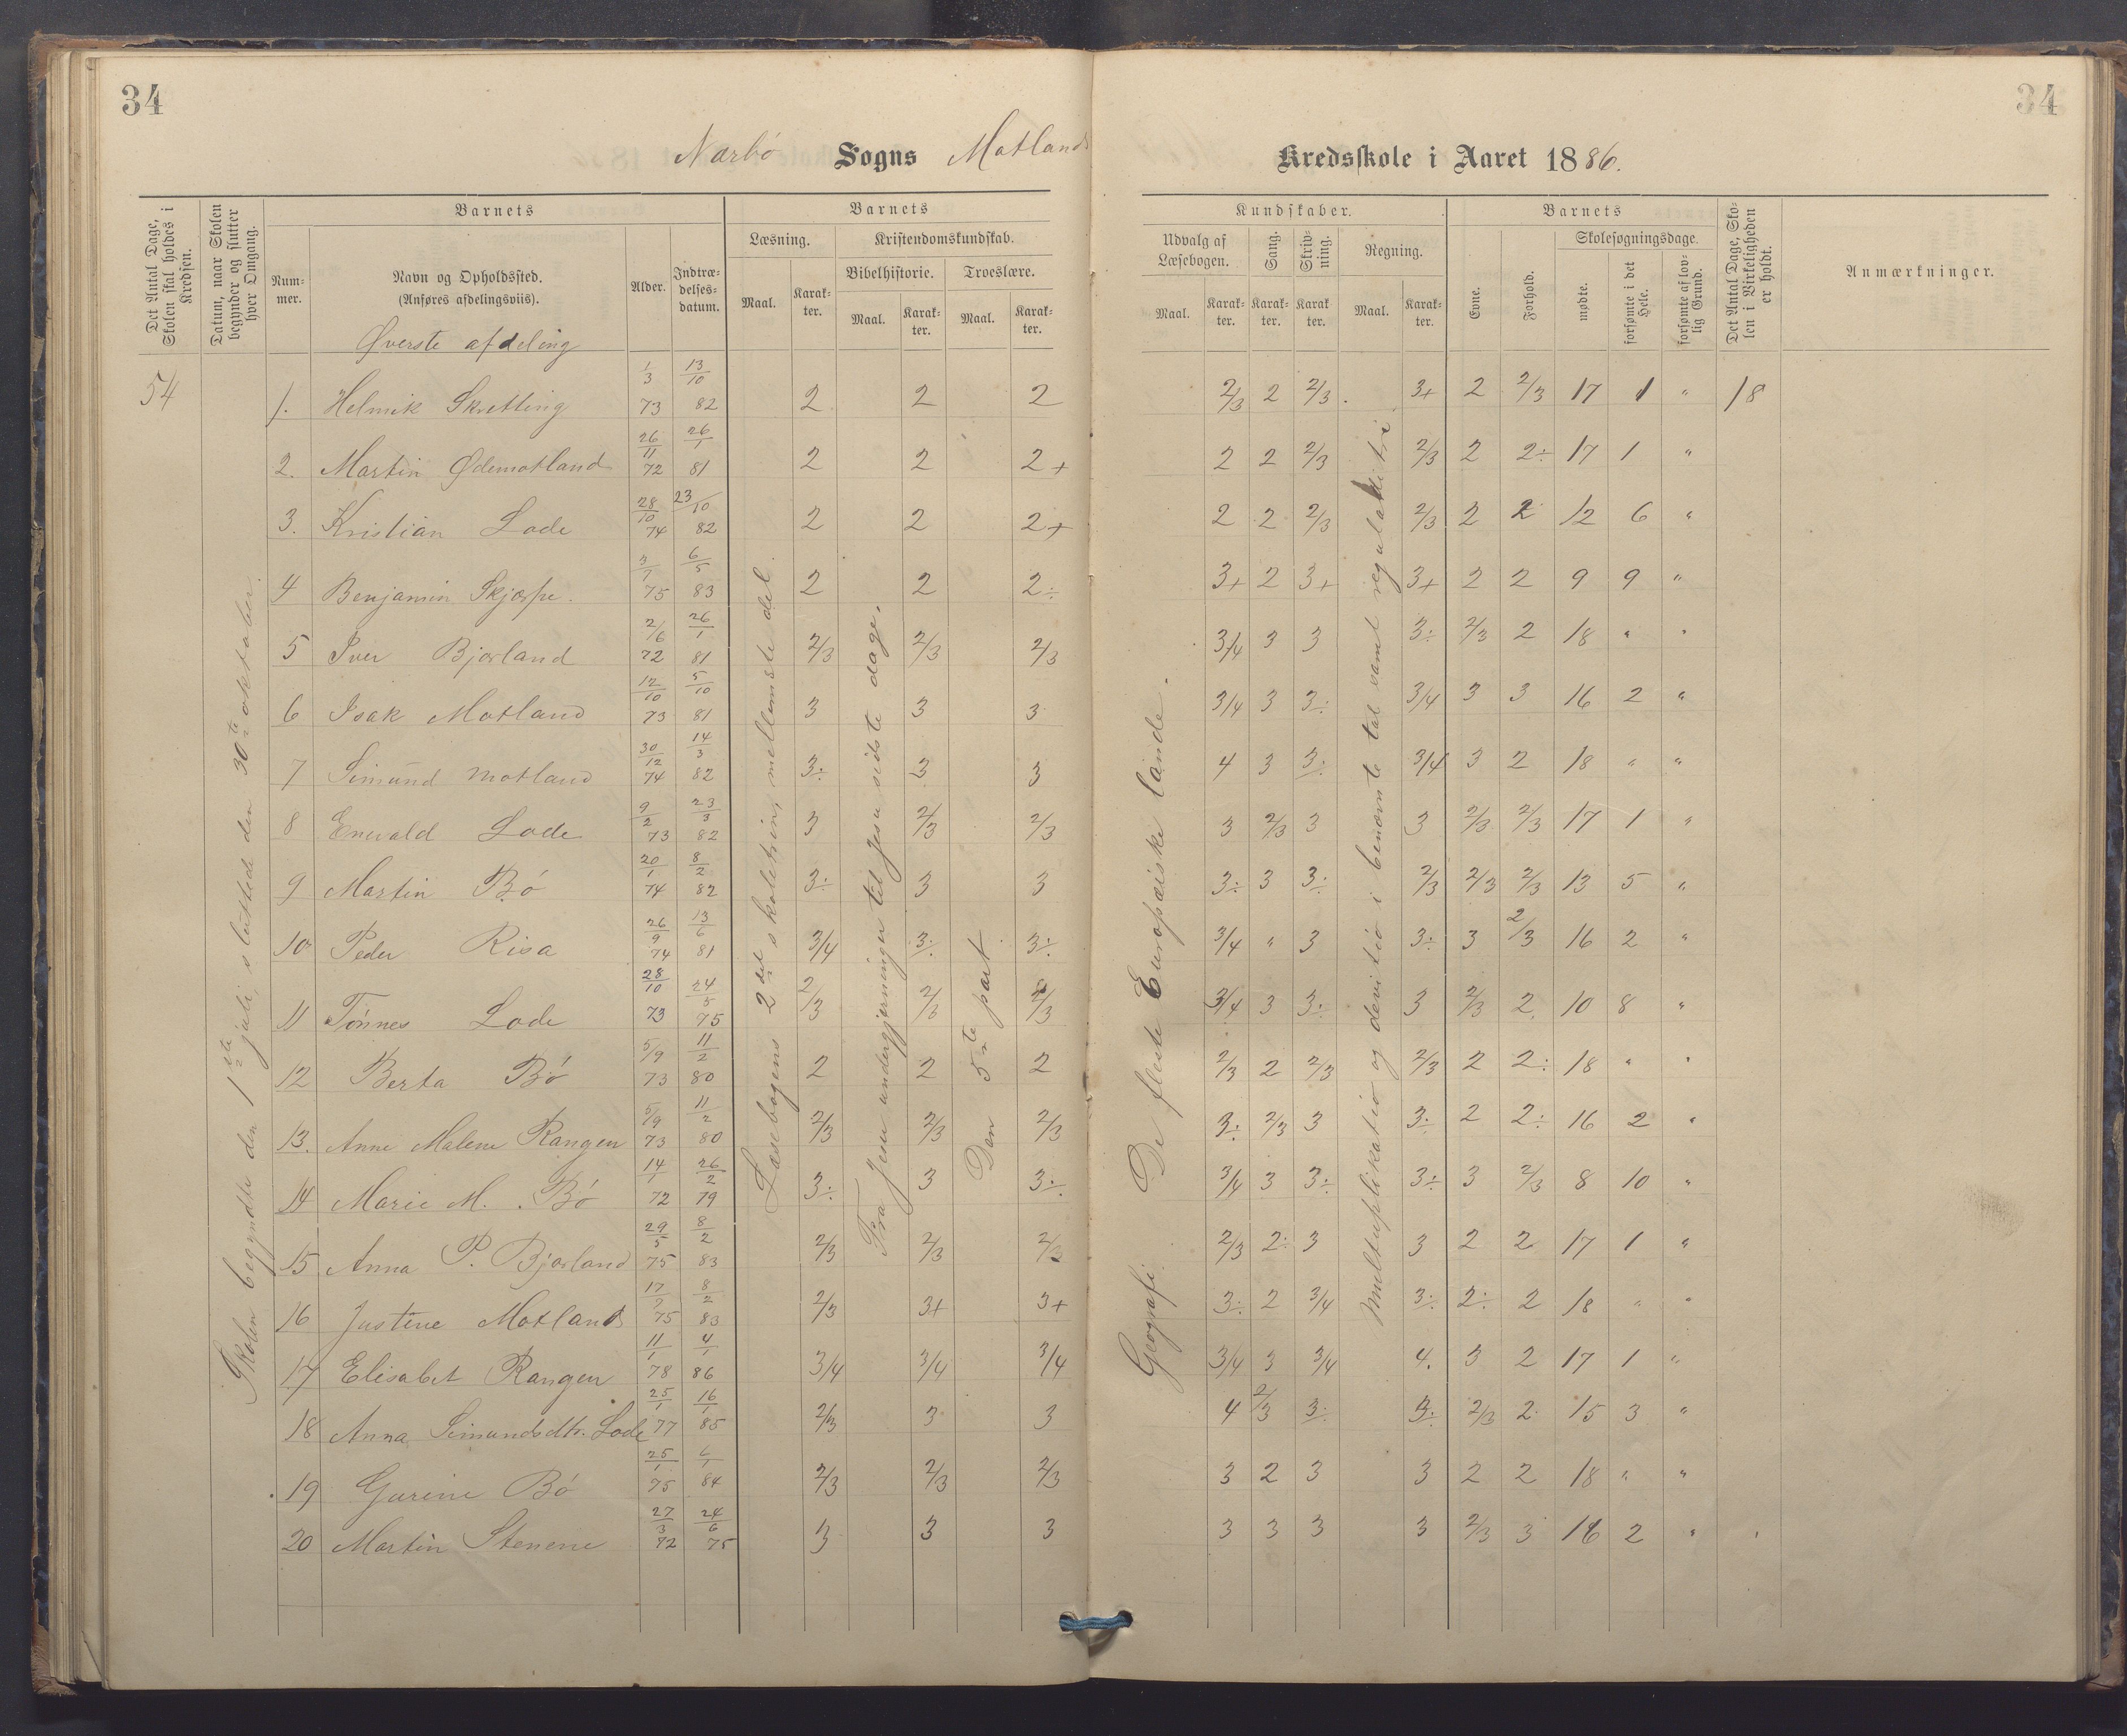 34
34
Nærbö Sogns Motlands Kredsskole i Aaret 1886.
Det Antal Dage, Skolen skal holdes i Kredsen.
Datum, naar Skolen begynder og slutter hver Omgang.
Barnets
Barnets
Kundskaber.
Barnets
Det Antal Dage, Skolen i Virkeligheden er holdt.
Anmærkninger.
Nummer.
Navn og Opholdssted.
(Anføres afdelingsviis).
Alder.
Indtrædelsesdatum.
Læsning.
Kristendomskundskab.
Bibelhistorie.
Troeslære.
Maal.
Karakter.
Maal.
Karakter.
Maal.
Karakter.
Udvalg af Læsebogen.
Sang.
Skrivning.
Regning.
Maal.
Karakter.
Karakter.
Karakter.
Maal.
Karakter.
Evne.
Forhold.
Skolesøgningsdage.
mødte.
forsømte i det Hele.
forsømte af lovlig Grund.
Øverste afdeling
54
Skolen begyndte den 1ste juli, sluttede den 30te oktober.
Læsebogens 2det skoletrin, mellemste del.
Fra Jesu undergjerninger til Jesu sidste dage.
Den 5te part.
Geografi. De fleste Europæiske lande.
Multuplikatio og devitio i benævnte tal samt reguladitri.
1. Helmik Skretting 1/3 73 13/10 82 2 2 2 2/3 2 2/3 3+ 2 2/3 17 1 " 18
2. Martin Ødemotland 26/11 72 26/1 81 2 2 2+ 2 2 2/3 2/3 2 2÷ 17 1 "
3. Kristian Lode 28/10 74 23/10 82 2 2 2+ 2 2 2/3 2/3 2 2 12 6 "
4 Benjamin Skjærpe. 75 6/5 83 2 2 2÷ 3+ 2 3+ 3+ 2 2 9 9 "
5 Iver Bjorland 2/6 72 26/1 81 2/3 2/3 2/3 3/4 3 3 3÷ 2/3 2 18 " "
6 Isak Motland 12/10 73 5/10 81 3 3 3 3/4 3 3÷ 3/4 3 3 16 2 "
7 Simund Motland 30/12 74 14/3 82 3÷ 3 3 4 3 3÷ 3/4 3 2 18 " "
8 Enevald Lode 9/2 73 23/3 82 3 2/3 2/3 3 2/3 3 3 2/3 2/3 17 1 "
9 Martin Bö 20/1 74 8/2 82 3÷ 3 3 3÷ 3 3÷ 2/3 2/3 2/3 13 5 "
10 Peder Risa 26/9 74 13/6 81 3/4 3÷ 3÷ 3/4 " 3 3÷ 3 2/3 16 2 "
11 Tönnes Lode 28/10 73 24/5 75 2/3 2/3 2/3 3/4 3 3÷ 3 2/3 2 10 8 "
12 Berta Bö 5/9 73 11/2 80 2 2 2 2/3 2 2/3 2/3 2 2÷ 18 " "
13. Anne Malene Rangen 5/9 73 11/2 80 2/3 2/3 2/3 3÷ 2/3 3 3÷ 2 2÷ 16 2 "
14 Marie M. Bö 14/1 72 26/2 79 3÷ 3 3÷ 3/4 3 3÷ 3÷ 3 2/3 8 10 "
15 Anna P. Bjorland 29/5 75 8/2 83 2/3 2/3 2/3 2/3 2÷ 3 3 2 2 17 1 "
16 Justine Motland 75 8/2 83 2/3 3+ 3+ 3÷ 2 3/4 3÷ 2÷ 2 18 " "
17 Elisabet Rangen 11/1 78 4/1 86 3/4 3/4 3/4 3/4 3 3/4 4. 3 2 17 1 "
18 Anna Simundsdtr. Lode 25/1 77 16/1 85 2/3 3 3 4 2/3 3÷ 3÷ 2/3 2 15 3 "
19 Gurine Bö 25/1 75 84 2/3 2/3 2/3 3 2 3 3 2 2 18 " "
20 Martin Stenene 27/3 72 24/6 75 3 3 3 3 3 3 3 2/3 3 16 2 "